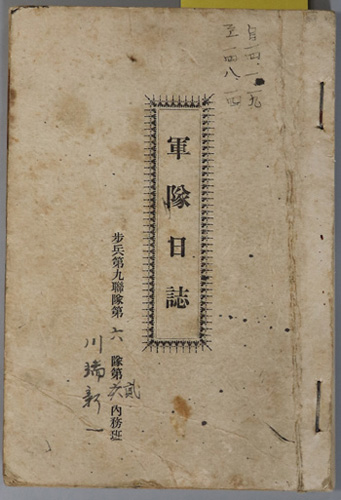 自一四、一、一九
至一四、八、一四
軍隊日誌
步兵第九聯隊第六隊第貳內務班
川端新一